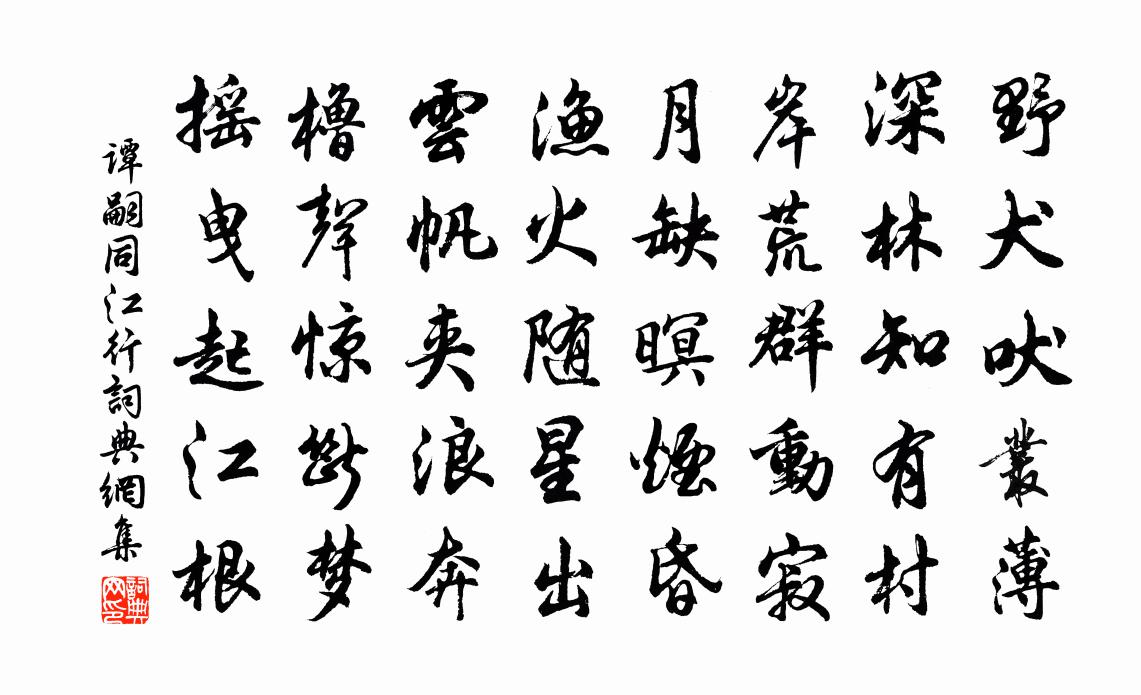 野犬吠叢薄
深林知有村
岸荒群動寂
月缺暝煙昏
渔火随星出
雲帆夹浪奔
櫓聲惊斷梦
摇曳起江根
谭嗣同江行詞典網集
詞典网印